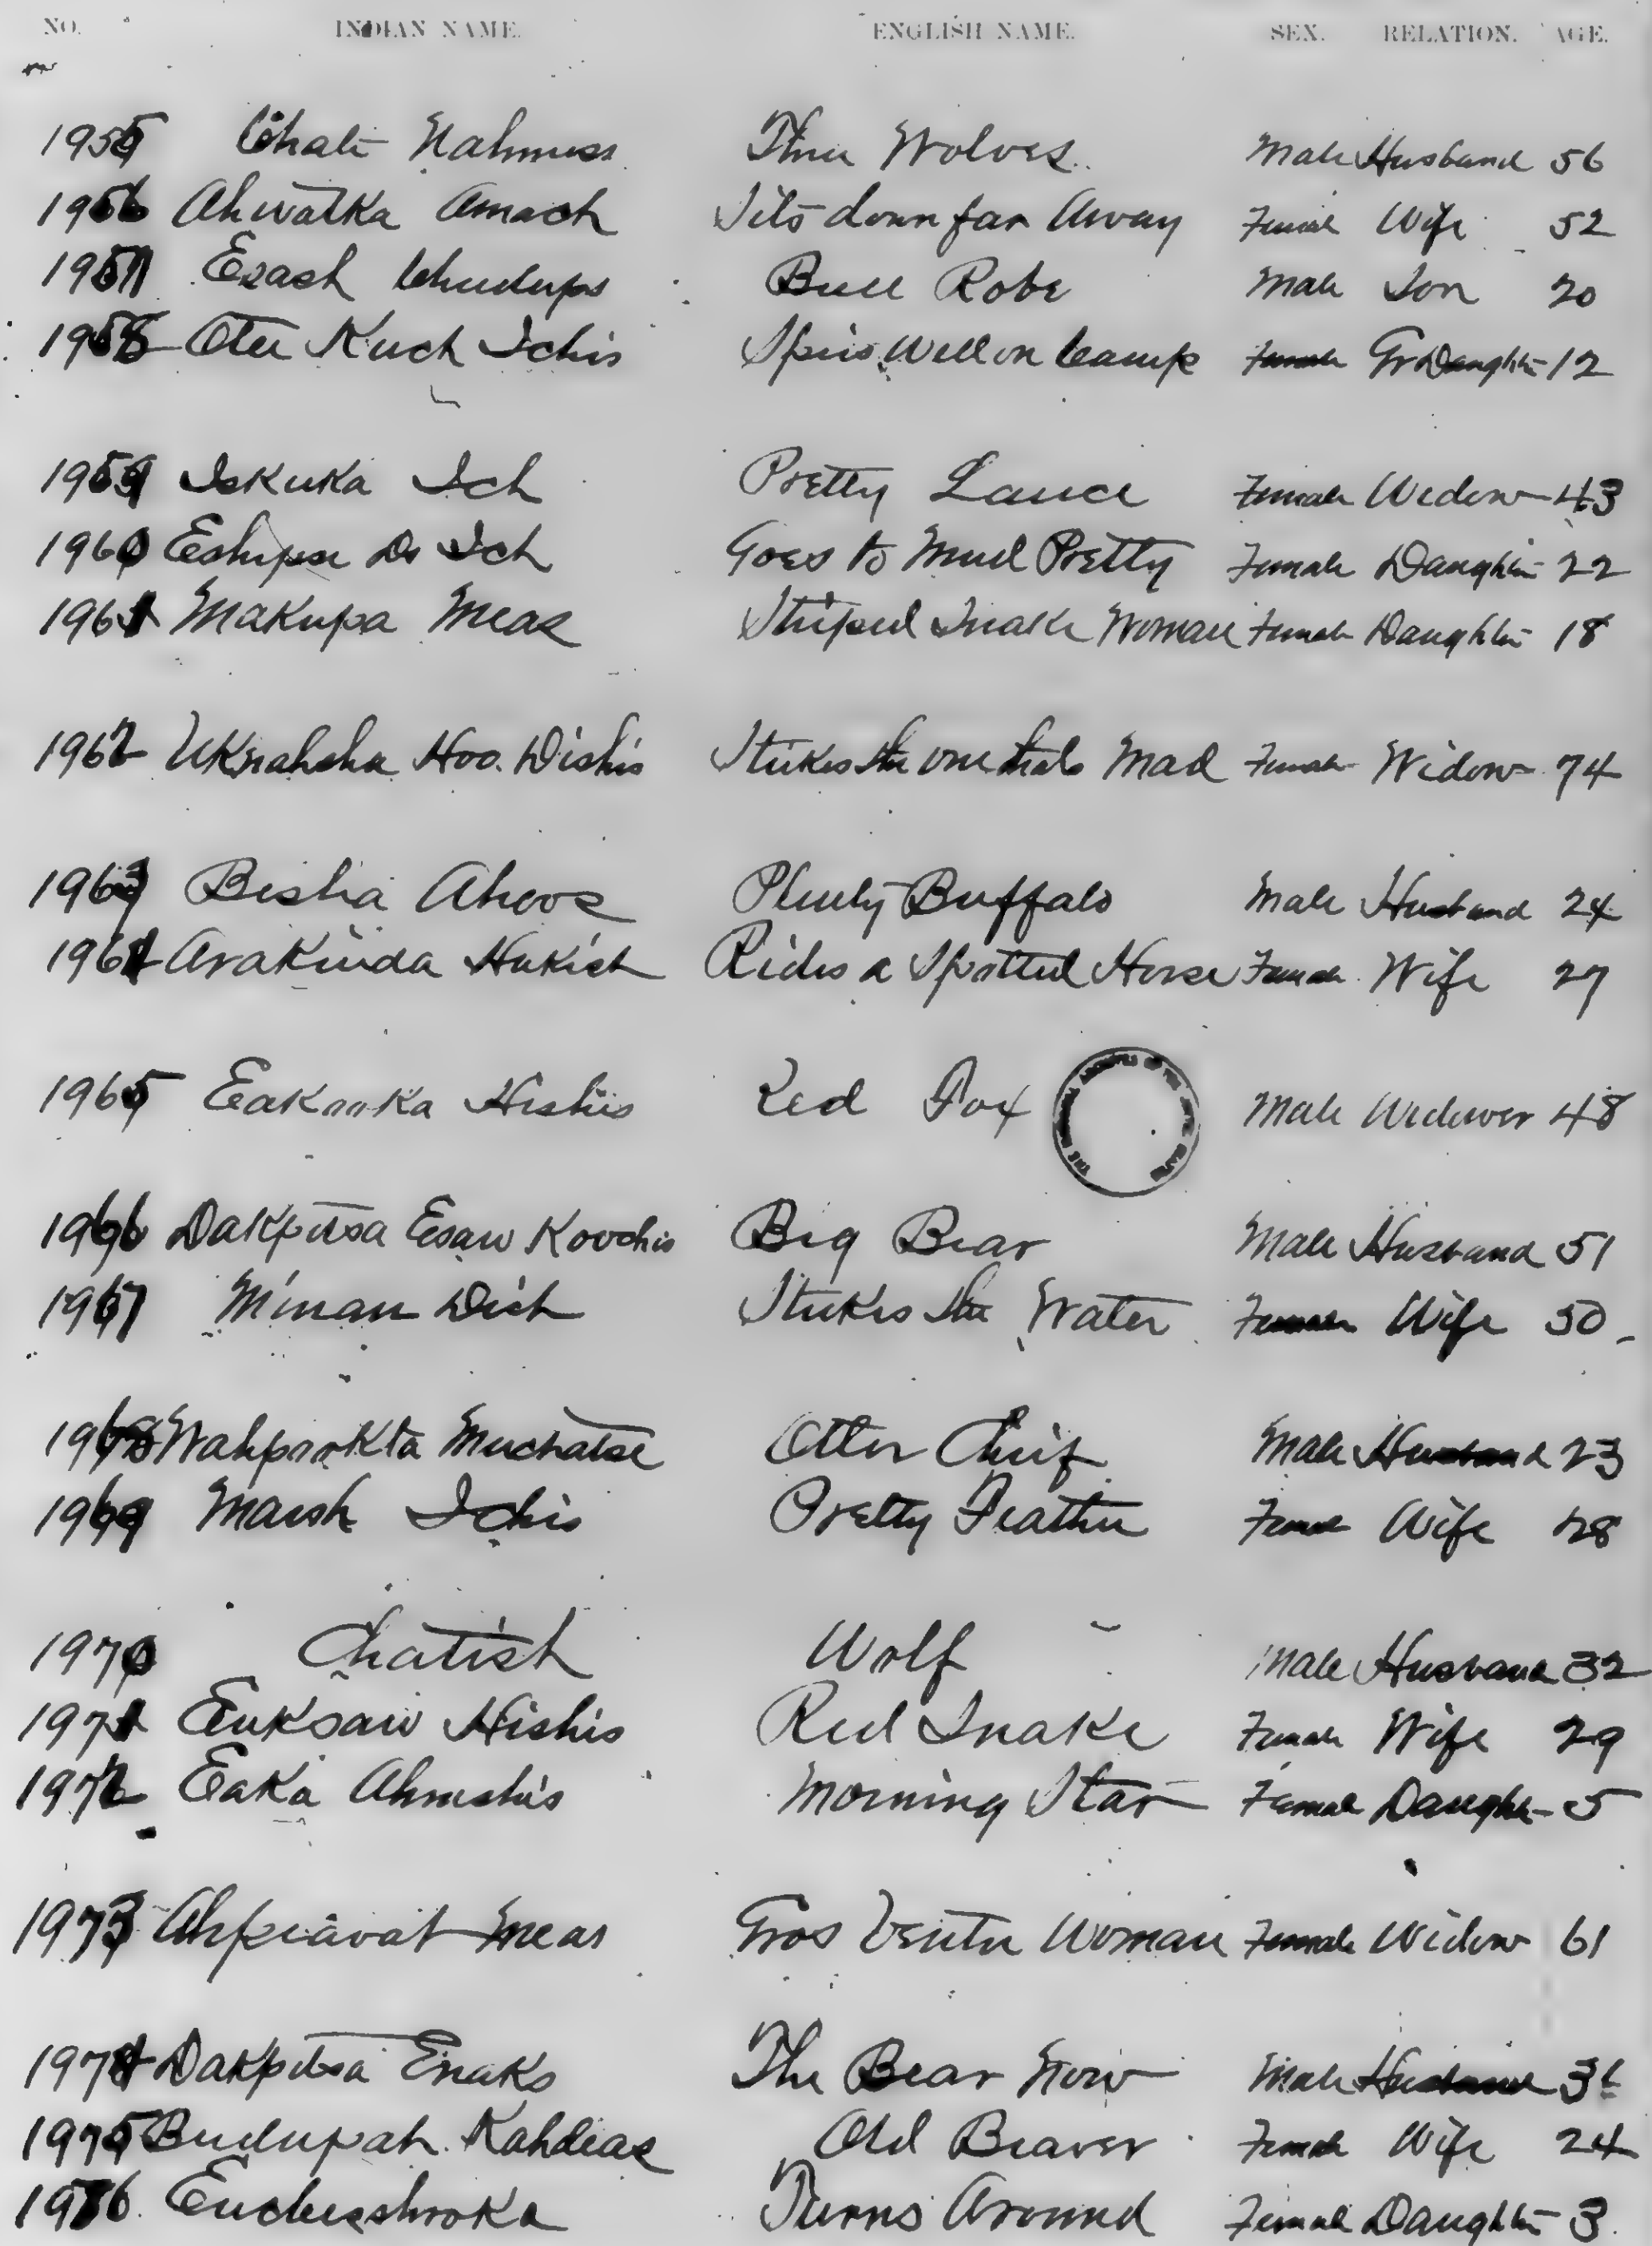 NO. INDIAN NAME. ENGLISH NAME. SEX. RELATION. AGE.
1955 Chate Nahmuss Three Wolves. Male Husband 56
1956 Ahwatka Amach Sits down far Away Female Wife 52
1957 Esash Chudups Bull Robe Male Son 20
1958 Otee Kuch Ichis Spies Well on Camp Female Gr Daughter 12
1959 Iskuka Ich Pretty Lance Female Widow 43
1960 Eshipse Ds Ich Goes to Mud Pretty Female Daughter 22
1961 Makupa Meas Striped Snake Woman Female Daughter 18
1962 Uknahcha Hoo. Dichis Strikes the one thats Mad Female Widow 74
1963 Bisha Ahoos Plenty Buffalo Male Husband 24
1964 Arakinda Hukish Rides a Spotted Horse Female Wife 27
1965 Hishis Red Fox Male Widower 48
THE NATIONAL ARCHIVES OF THE UNITED STATES
1966 Dakpitsa Esaw Koochis Big Bear Male Husband 51
1967 Minan Dich Strikes the Water Female Wife 50
1968 Muchatse Otter Chief Male Husband 23
1969 Mash Ichis Pretty Feather Female Wife 28
1970 Chatish Wolf Male Husband 32
1971 Euksaw Hishis Red Snake Female Wife 29
1972 Eaka Ahmshis Morning Star Female Daughter 5
1973 Ahpeavat Meas Gros Ventre Woman Female Widow 61
1974 Dakpitsa Enaks The Bear Now Male Husband
1975 Budupah Kahdeas Old Beaver Female Wife 24
1976 Turns Around Female Daughter 3